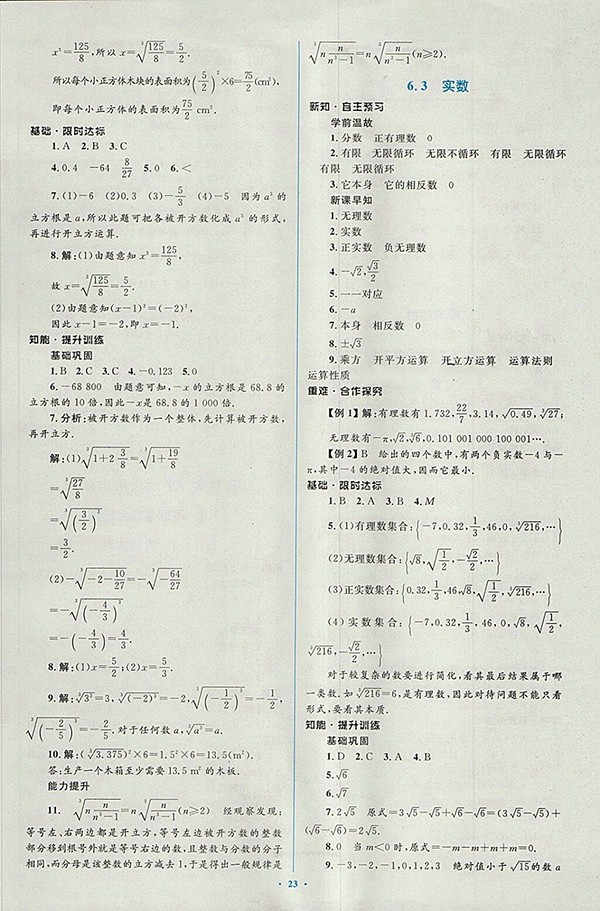 x³=125/8,所以 x=∛(125/8)=5/2.
所以每个小正方体木块的表面积为(5/2)²×6=75/2(cm²),
即每个小正方体的表面积为75/2 cm².
基础·限时达标
1.A 2.B 3.C
4.0.4 -64 8/27 5.0 6.<
7.(1)-6 (2)0.3 (3)-5/3 (4)-5 因为 a³ 的
立方根是 a,所以此题可把各被开方数化成 a³ 的形式,
再进行开立方运算.
8.解:(1)由题意知 x³=125/8,
故 x=∛(125/8)=5/2.
(2)由题意知(x-1)³=(-2)³,
因此 x-1=-2,即 x=-1.
知能·提升训练
基础巩固
1.B 2.C 3.C 4.-0.123 5.0
6.-68 800 由题意可知,-x 的立方根是 68.8 的
立方根的 10 倍,因此-x是 68.8 的 1 000 倍.
7.分析:被开方数作为一个整体,先计算被开方数,
再开立方.
解:(1)∛(1+2 3/8)=∛(1+19/8)
=∛(27/8)
=∛((3/2)³)
=3/2.
(2)-∛(-2-10/27)=-∛(-64/27)
=-∛((-4/3)³)
=-(-4/3)=4/3.
8.解:(1)x=5/2;(2)x=3/2.
9.解:∛(3³)=3,∛((-2)³)=-2,∛((-1/2)³)=-1/2,
∛((-2/5)³)=-2/5.对于任何数 a,∛(a³)=a.
10.解:(∛3.375)²×6=1.5²×6=13.5(m²).
答:生产一个木箱至少需要 13.5 m² 的木板.
能力提升
11. ∛(n n/(n³-1))=n∛(n/(n³-1))(n≥2) 经观察发现:
等号左、右两边都是开立方,等号左边被开方数的整数
部分移到根号外就是等号右边的数,且整数与分数的分子
相同,而分母是该整数的立方减去1,于是得出一般规律是
∛(n n/(n³-1))=n∛(n/(n³-1))(n≥2).
6.3 实数
新知·自主预习
学前温故
1.分数 正有理数 0
2.有限 无限循环 无限不循环 有限 无限循环
有限 无限循环
3.它本身 它的相反数 0
新课早知
1.无理数
2.实数
3.正实数 负无理数
4.-√2,√3/2
5.一一对应
6.-a
7.本身 相反数 0
8.±√3
9.乘方 开平方运算 开立方运算 运算法则
运算性质
重难·合作探究
【例 1】解:有理数有 1.732,22/7,3.14,√0.49,∛27;
无理数有-π,√2,√6,0.101 001 000 100 001….
【例 2】B 给出的四个数中,有两个负实数-4 与-
π,其中-4 的绝对值大,因而它最小.
基础·限时达标
1.B 2.A 3.B 4.M
5.(1)有理数集合:{-7,0.32,1/3,46,0,∛216,…}
(2)无理数集合:{√8,√(1/2),-√2/2,…}
(3)正实数集合:{0.32,1/3,46,√8,√(1/2),∛216,…}
(4)实数集合:{-7,0.32,1/3,46,0,√8,√(1/2),
∛216,-√2/2,…}
对于较复杂的数要进行简化,看其最后结果属于哪
一类数.如∛216=6,是有理数,因此对待问题不能只看
形式,要看其本质.
知能·提升训练
基础巩固
1.D 2.C 3.A 4.B
5.√6
6.√7
7.2√5 原式=3√5-√5+√6-√6=(3√5-√5)+
(√6-√6)=2√5.
8.0 当 m<0 时,原式=-m-m+m+m=0.
9.-3,-2,-1,0,1,2,3 绝对值小于√15的数 a
23